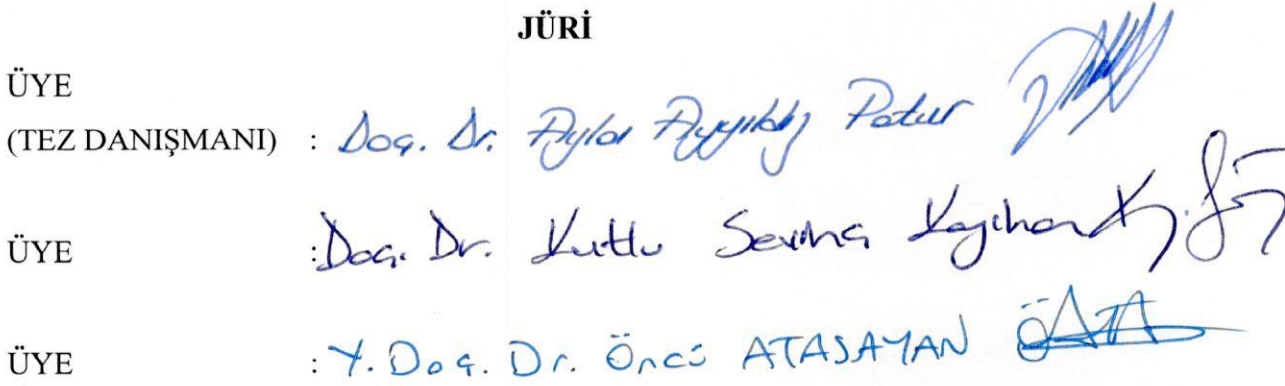 JÜRİ
ÜYE
(TEZ DANIŞMANI) : Doç. Dr. Ayla Ayyıldız Potur
ÜYE : Doç. Dr. Kutlu Sevinç Kayıhan
ÜYE : Y. Doç. Dr. Öncü ATASAYAN